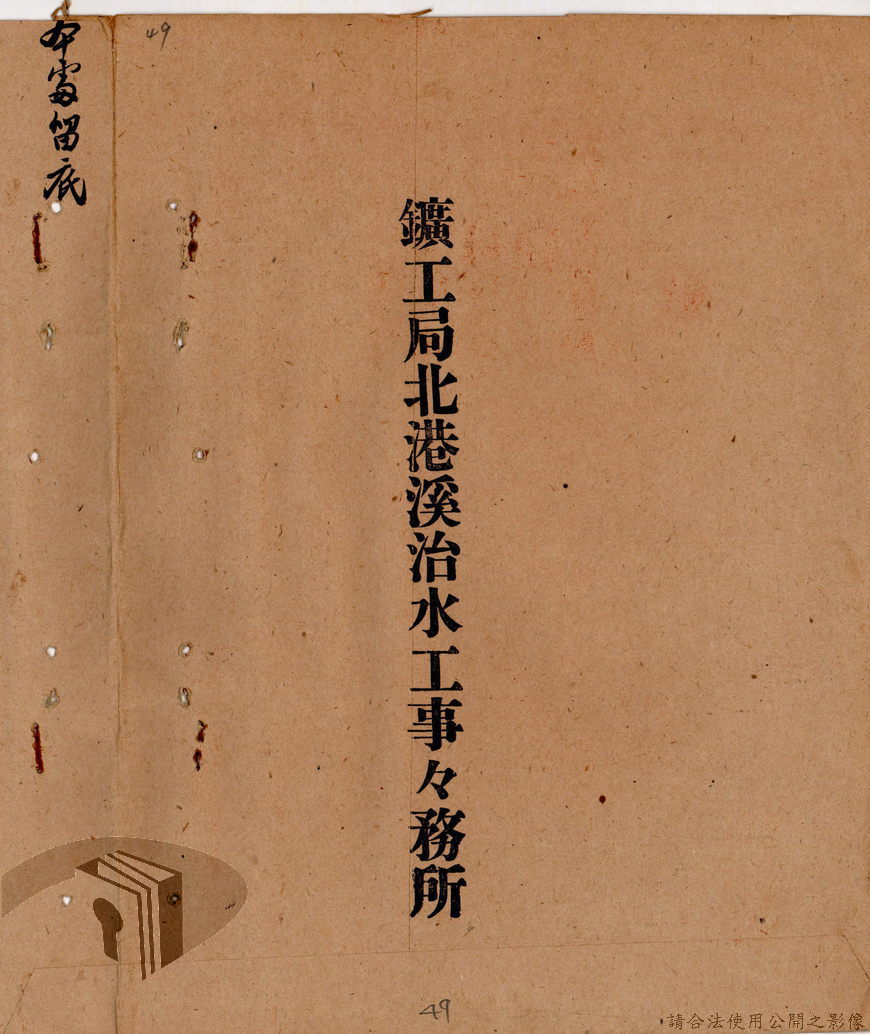 49
鑛工局北港溪治水工事々務所
本處留底
49
請合法使用公開之影像